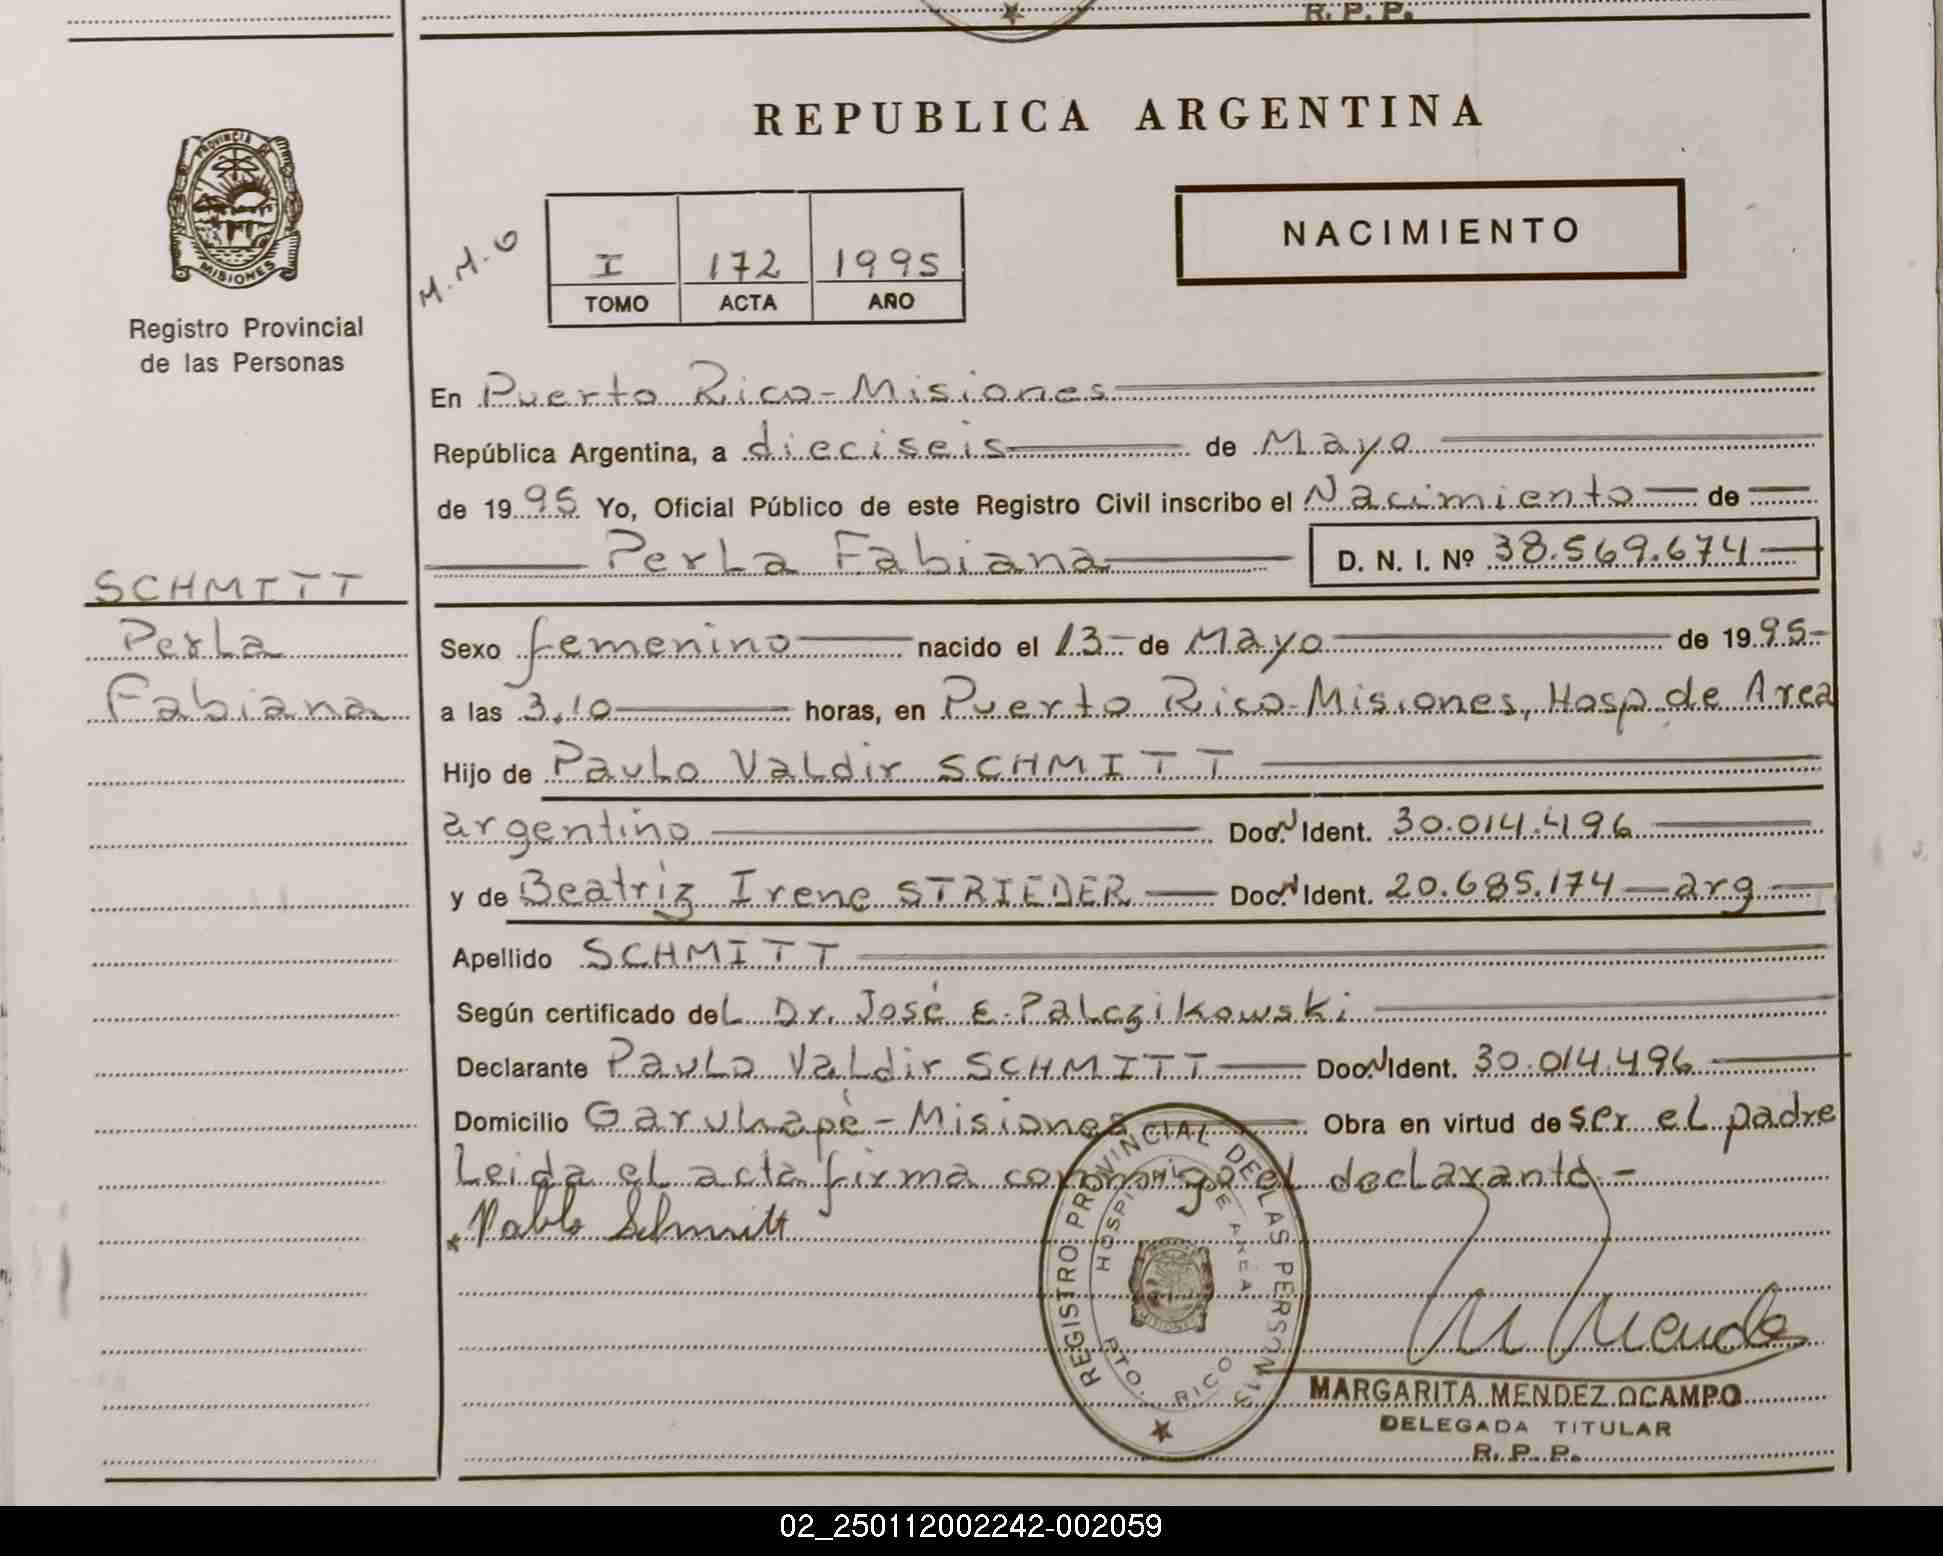 R. P. P.
PROVINCIA DE
MISIONES
Registro Provincial
de las Personas
SCHMITT
Perla
Fabiana
REPUBLICA ARGENTINA
M.M.O
I 172 1995
TOMO ACTA AÑO
NACIMIENTO
En Puerto Rico-Misiones
República Argentina, a dieciseis de Mayo
de 1995 Yo, Oficial Público de este Registro Civil inscribo el Nacimiento de
Perla Fabiana D. N. I. Nº 38.569.674
Sexo femenino nacido el 13 de Mayo de 1995
a las 3,10 horas, en Puerto Rico-Misiones, Hosp de Area
Hijo de Paulo Valdir SCHMITT
argentino Doc. Ident. 30.014.496
y de Beatriz Irene STRIEDER Doc. Ident. 20.685.174 arg
Apellido SCHMITT
Según certificado del Dr. José E. Palczikowski
Declarante Paulo Valdir SCHMITT Doc. Ident. 30.014.496
Domicilio Garuhapé-Misiones Obra en virtud de ser el padre
Leida el acta firma conmigo el declarante.-
Pablo Schmitt
REGISTRO PROVINCIAL DE LAS PERSONAS
HOSPITAL DE AREA
PTO. RICO
M Mendez
MARGARITA MENDEZ OCAMPO
DELEGADA TITULAR
R. P. P.
02_250112002242-002059